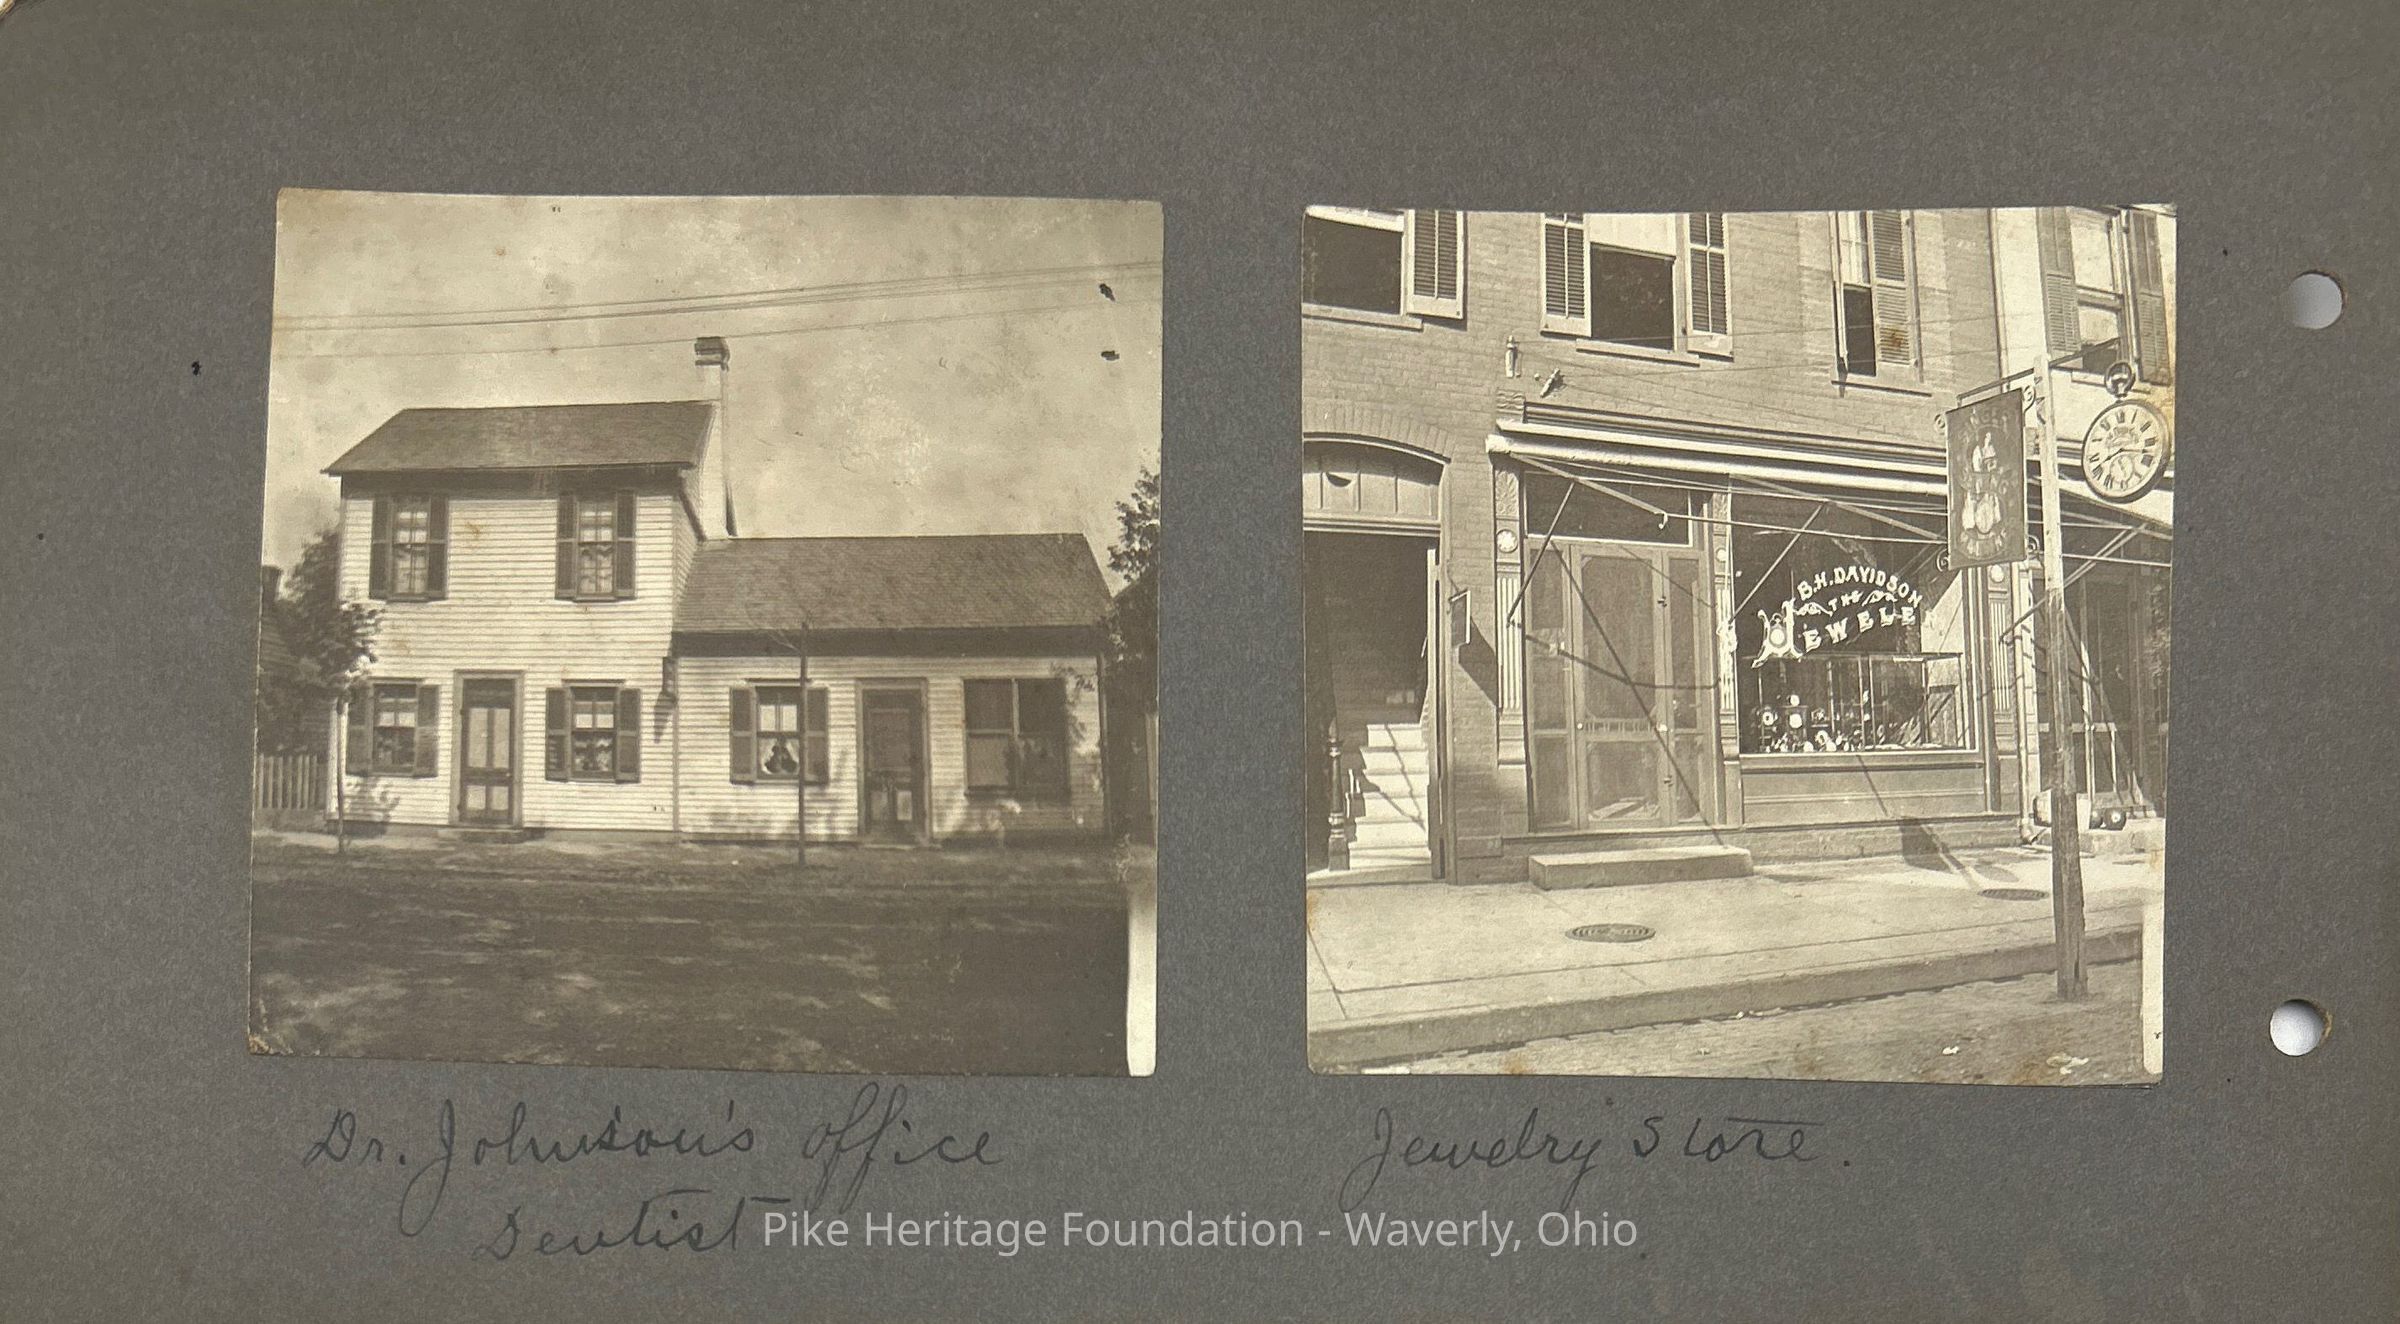 B.H. DAVIDSON
THE
JEWELE
Dr. Johnson's office
Dentist
Jewelry Store.
Pike Heritage Foundation - Waverly, Ohio